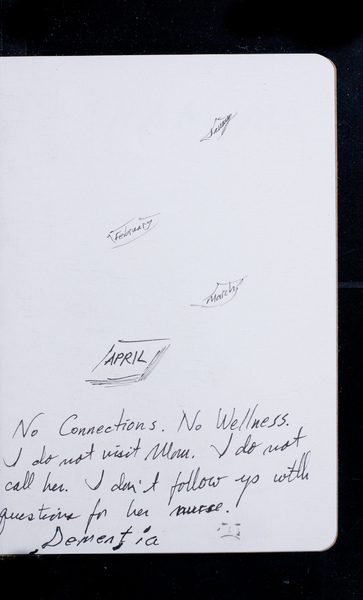 January
February
March
APRIL
No Connections. No Wellness.
I do not visit Mom. I do not
call her. I don't follow up with
questions for her nurse.
Dementia